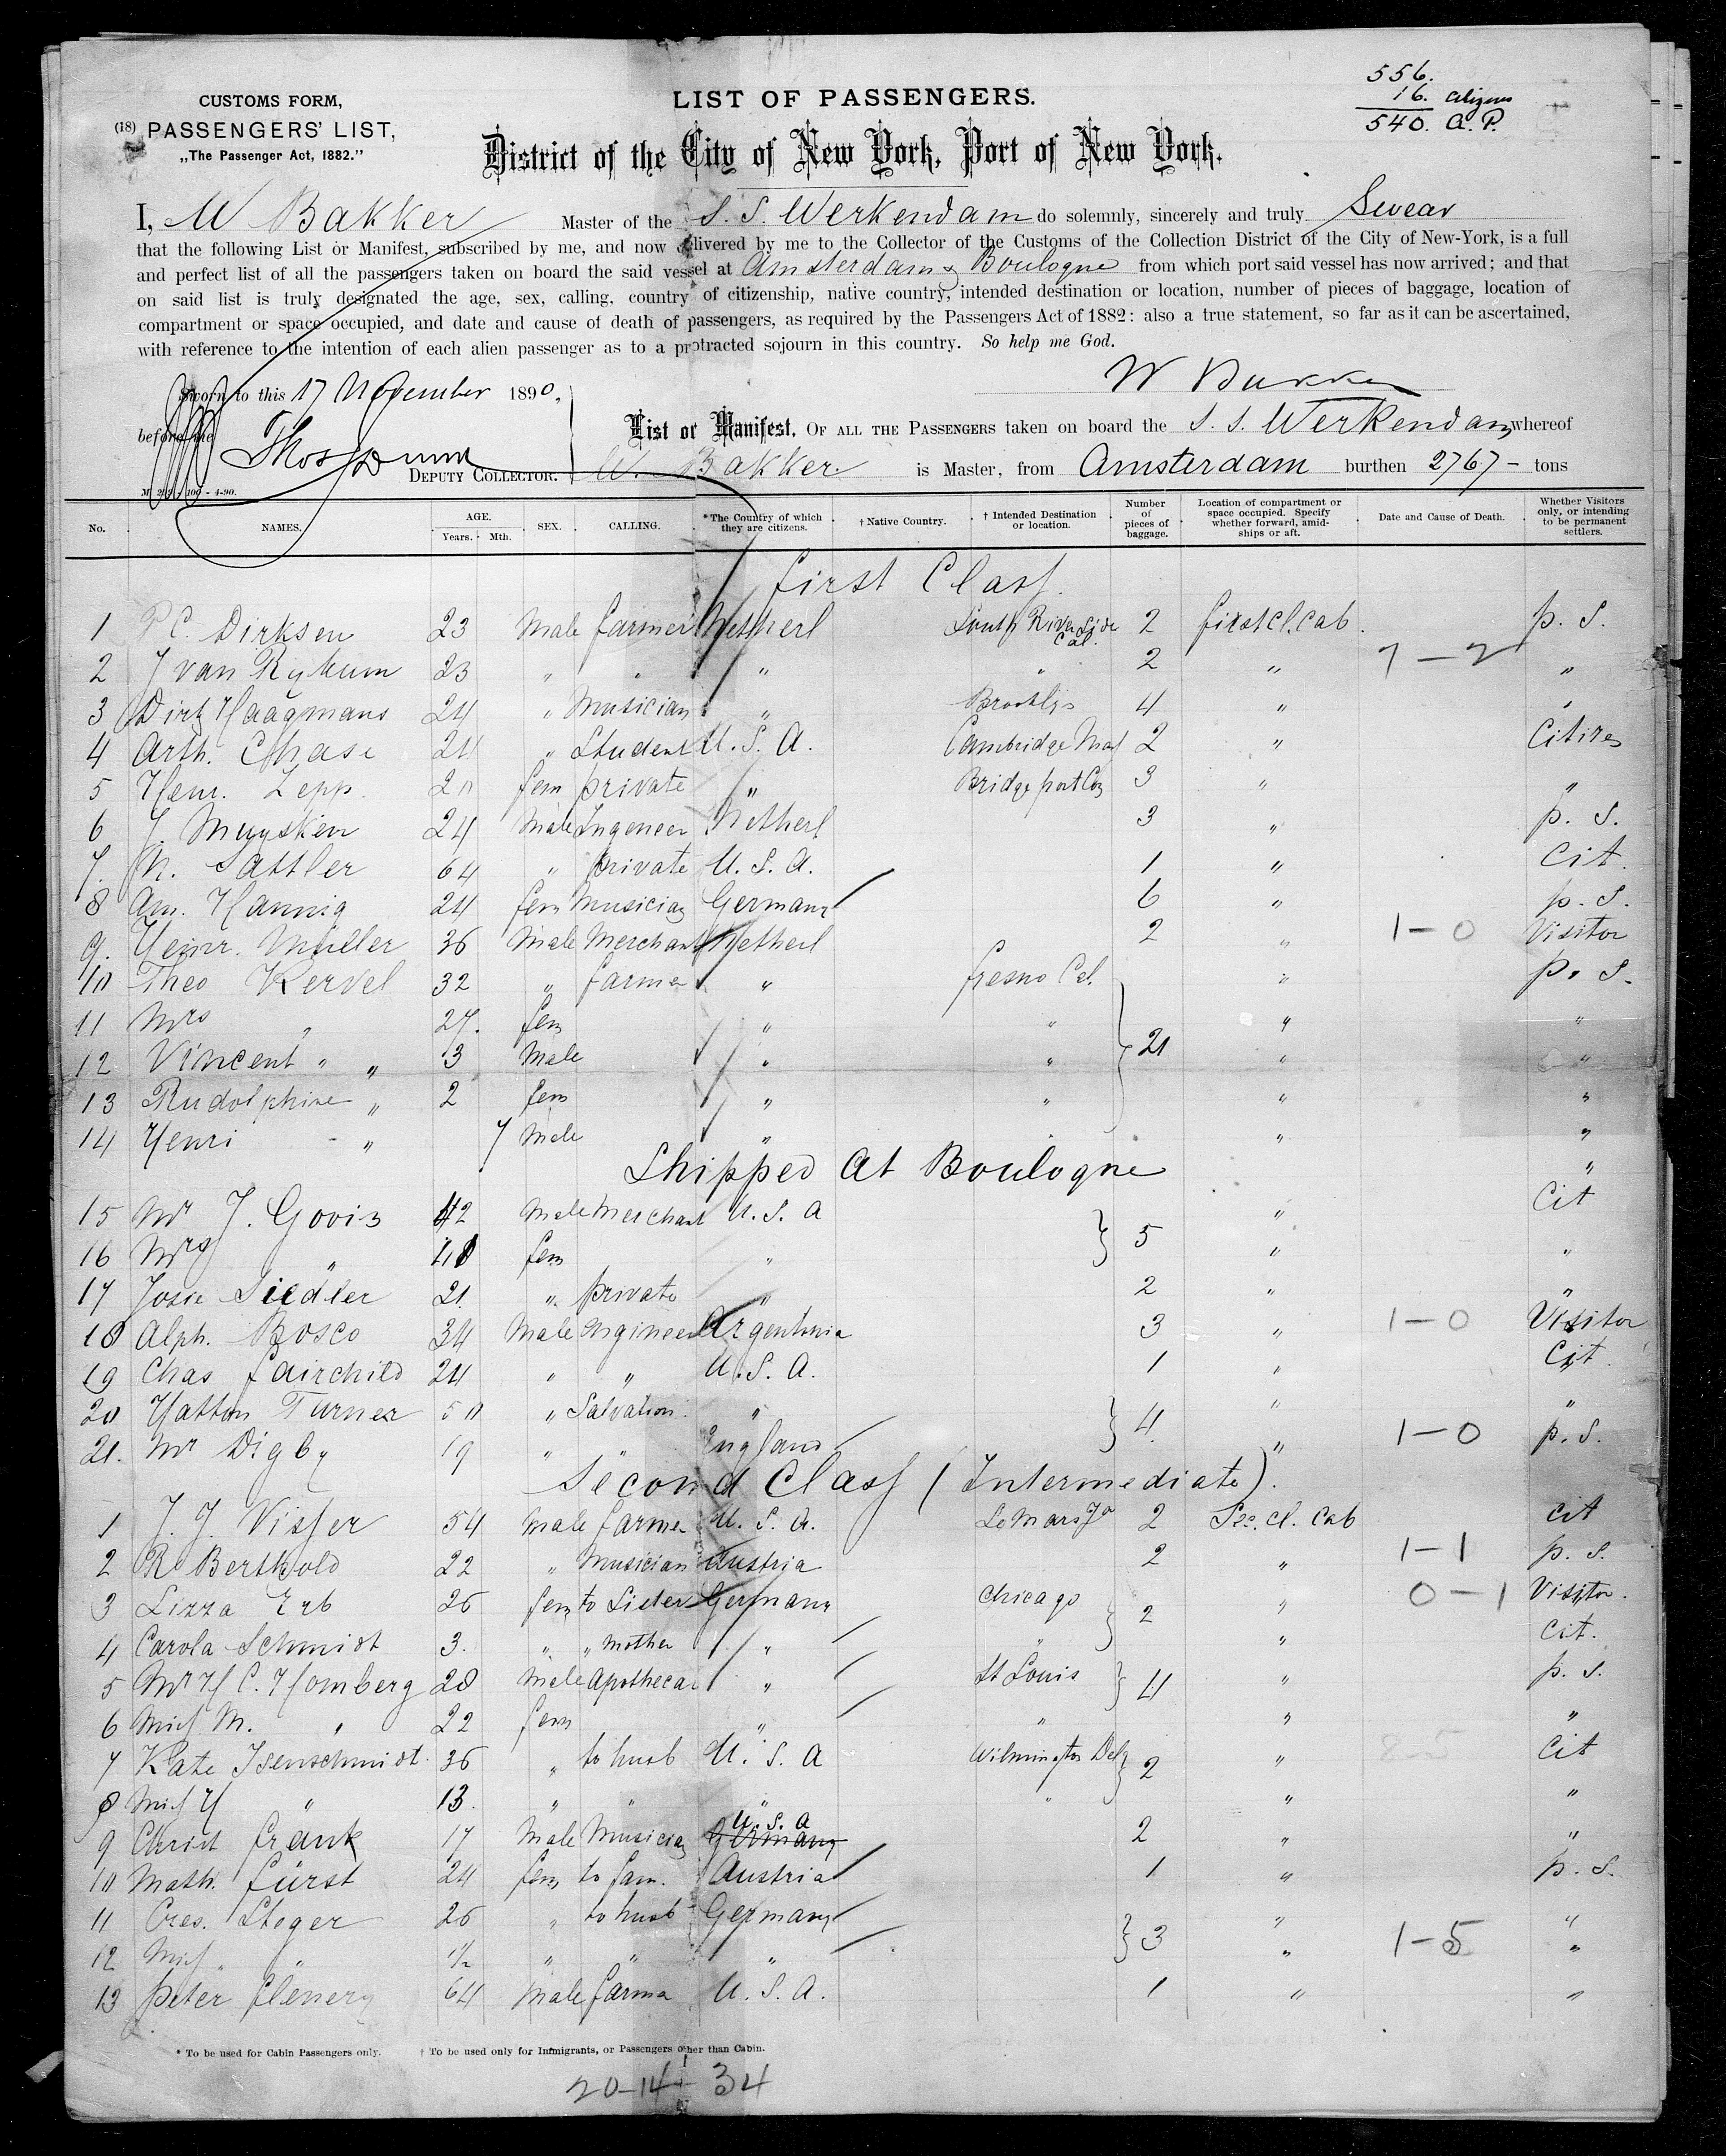 556.
16. citizens
540. A. P.
CUSTOMS FORM,
(18) PASSENGERS' LIST,
„The Passenger Act, 1882.”
LIST OF PASSENGERS.
District of the City of New York, Port of New York.
I, W Bakker Master of the S. S. Werkendam do solemnly, sincerely and truly Swear
that the following List or Manifest, subscribed by me, and now delivered by me to the Collector of the Customs of the Collection District of the City of New-York, is a full
and perfect list of all the passengers taken on board the said vessel at Amsterdam & Boulogne from which port said vessel has now arrived; and that
on said list is truly designated the age, sex, calling, country of citizenship, native country, intended destination or location, number of pieces of baggage, location of
compartment or space occupied, and date and cause of death of passengers, as required by the Passengers Act of 1882: also a true statement, so far as it can be ascertained,
with reference to the intention of each alien passenger as to a protracted sojourn in this country. So help me God.
W Bakker
Sworn to this 17 November 1890,
before me
Thos Dunn
DEPUTY COLLECTOR.
List or Manifest, OF ALL THE PASSENGERS taken on board the S. S. Werkendam, whereof
W. Bakker is Master, from Amsterdam burthen 2767 - tons
No. NAMES. AGE. Years. Mth. SEX. CALLING. *The Country of which they are citizens. † Native Country. † Intended Destination or location. Number of pieces of baggage. Location of compartment or space occupied. Specify whether forward, amidships or aft. Date and Cause of Death. Whether Visitors only, or intending to be permanent settlers.
First Class.
1 P C. Dirksen 23 Male farmer Netherl South River Side Cal. 2 first cl. cab. p. S.
2 J van 23 " " " " 2 " 7-2 "
3 Dirk Haagmans 24 " Musician " Brooklyn 4 " "
4 Arth. Chase 24 " Student U. S. A. Cambridge Mas 2 " Citizes
5 Henr. Zepp. 20 fem private " Bridgeport Con 3 " "
6 J. Muysken 24 Male Ingeneer Netherl 3 " p. S.
7. N. Sattler 64 " private U. S. A. 1 " Cit.
8 Am. Hannig 24 fem Musician Germany 6 " p. S.
9. Heinr. Müller 36 Male Merchant Netherl 2 " 1-0 Visitor
10 Theo Kervel 32 " farmer " Fresno Cal. " p. S.
11 Mrs " 27. fem " " " "
12 Vincent " " 3 Male " " 21 " "
13 Rudolphine " 2 fem " " " "
14 Henri " 7 Male " " " "
Shipped at Boulogne "
15 Mr J. Govis 42 Male Merchant U. S. A " Cit
16 Mrs " 40 fem " 5 " "
17 Josie Siedler 21. " private " 2 " "
18 Alph. Bosco 34 Male Engineer Argentinia 3 " 1-0 Visitor
19 Chas Fairchild 24 " " U. S. A. 1 " Cit.
20 Hatton Turner 50 " Salvation. " 4 " "
21. Mr Digby 19 " " England " 1-0 p. S.
Second Class (Intermediate).
1 J. J. Visser 54 Male farmer U. S. A. Le Mars Ja 2 Sec. cl. Cab cit
2 R. Berthold 22 " Musician Austria 2 " 1-1 p. s.
3 Lizza Erb 26 fem to Sister Germany Chicago 2 " 0-1 Visitor.
4 Carola Schmidt 3. " " mother " " " Cit.
5 Mr H C. Homberg 28 Male Apothecar " St Louis 4 " p. s.
6 Miss M. " 22 fem " " " "
7 Kate Isenschmidt. 36 " to husb U. S. A Wilmington Del 2 " Cit
8 Miss H " 13. " " " " " "
9 Christ Frank 17 Male Musician U. S. A Germany 2 " "
10 Math. Fürst 24 fem to fam. Austria 1 " p. s.
11 Cres. Stoger 26 " to husb Germany 3 " "
12 Miss " " ½ " " " " 1-5 "
13 Peter Flenery 64 Male farmer U. S. A. 1 " "
* To be used for Cabin Passengers only. † To be used only for Immigrants, or Passengers other than Cabin.
20-14 34